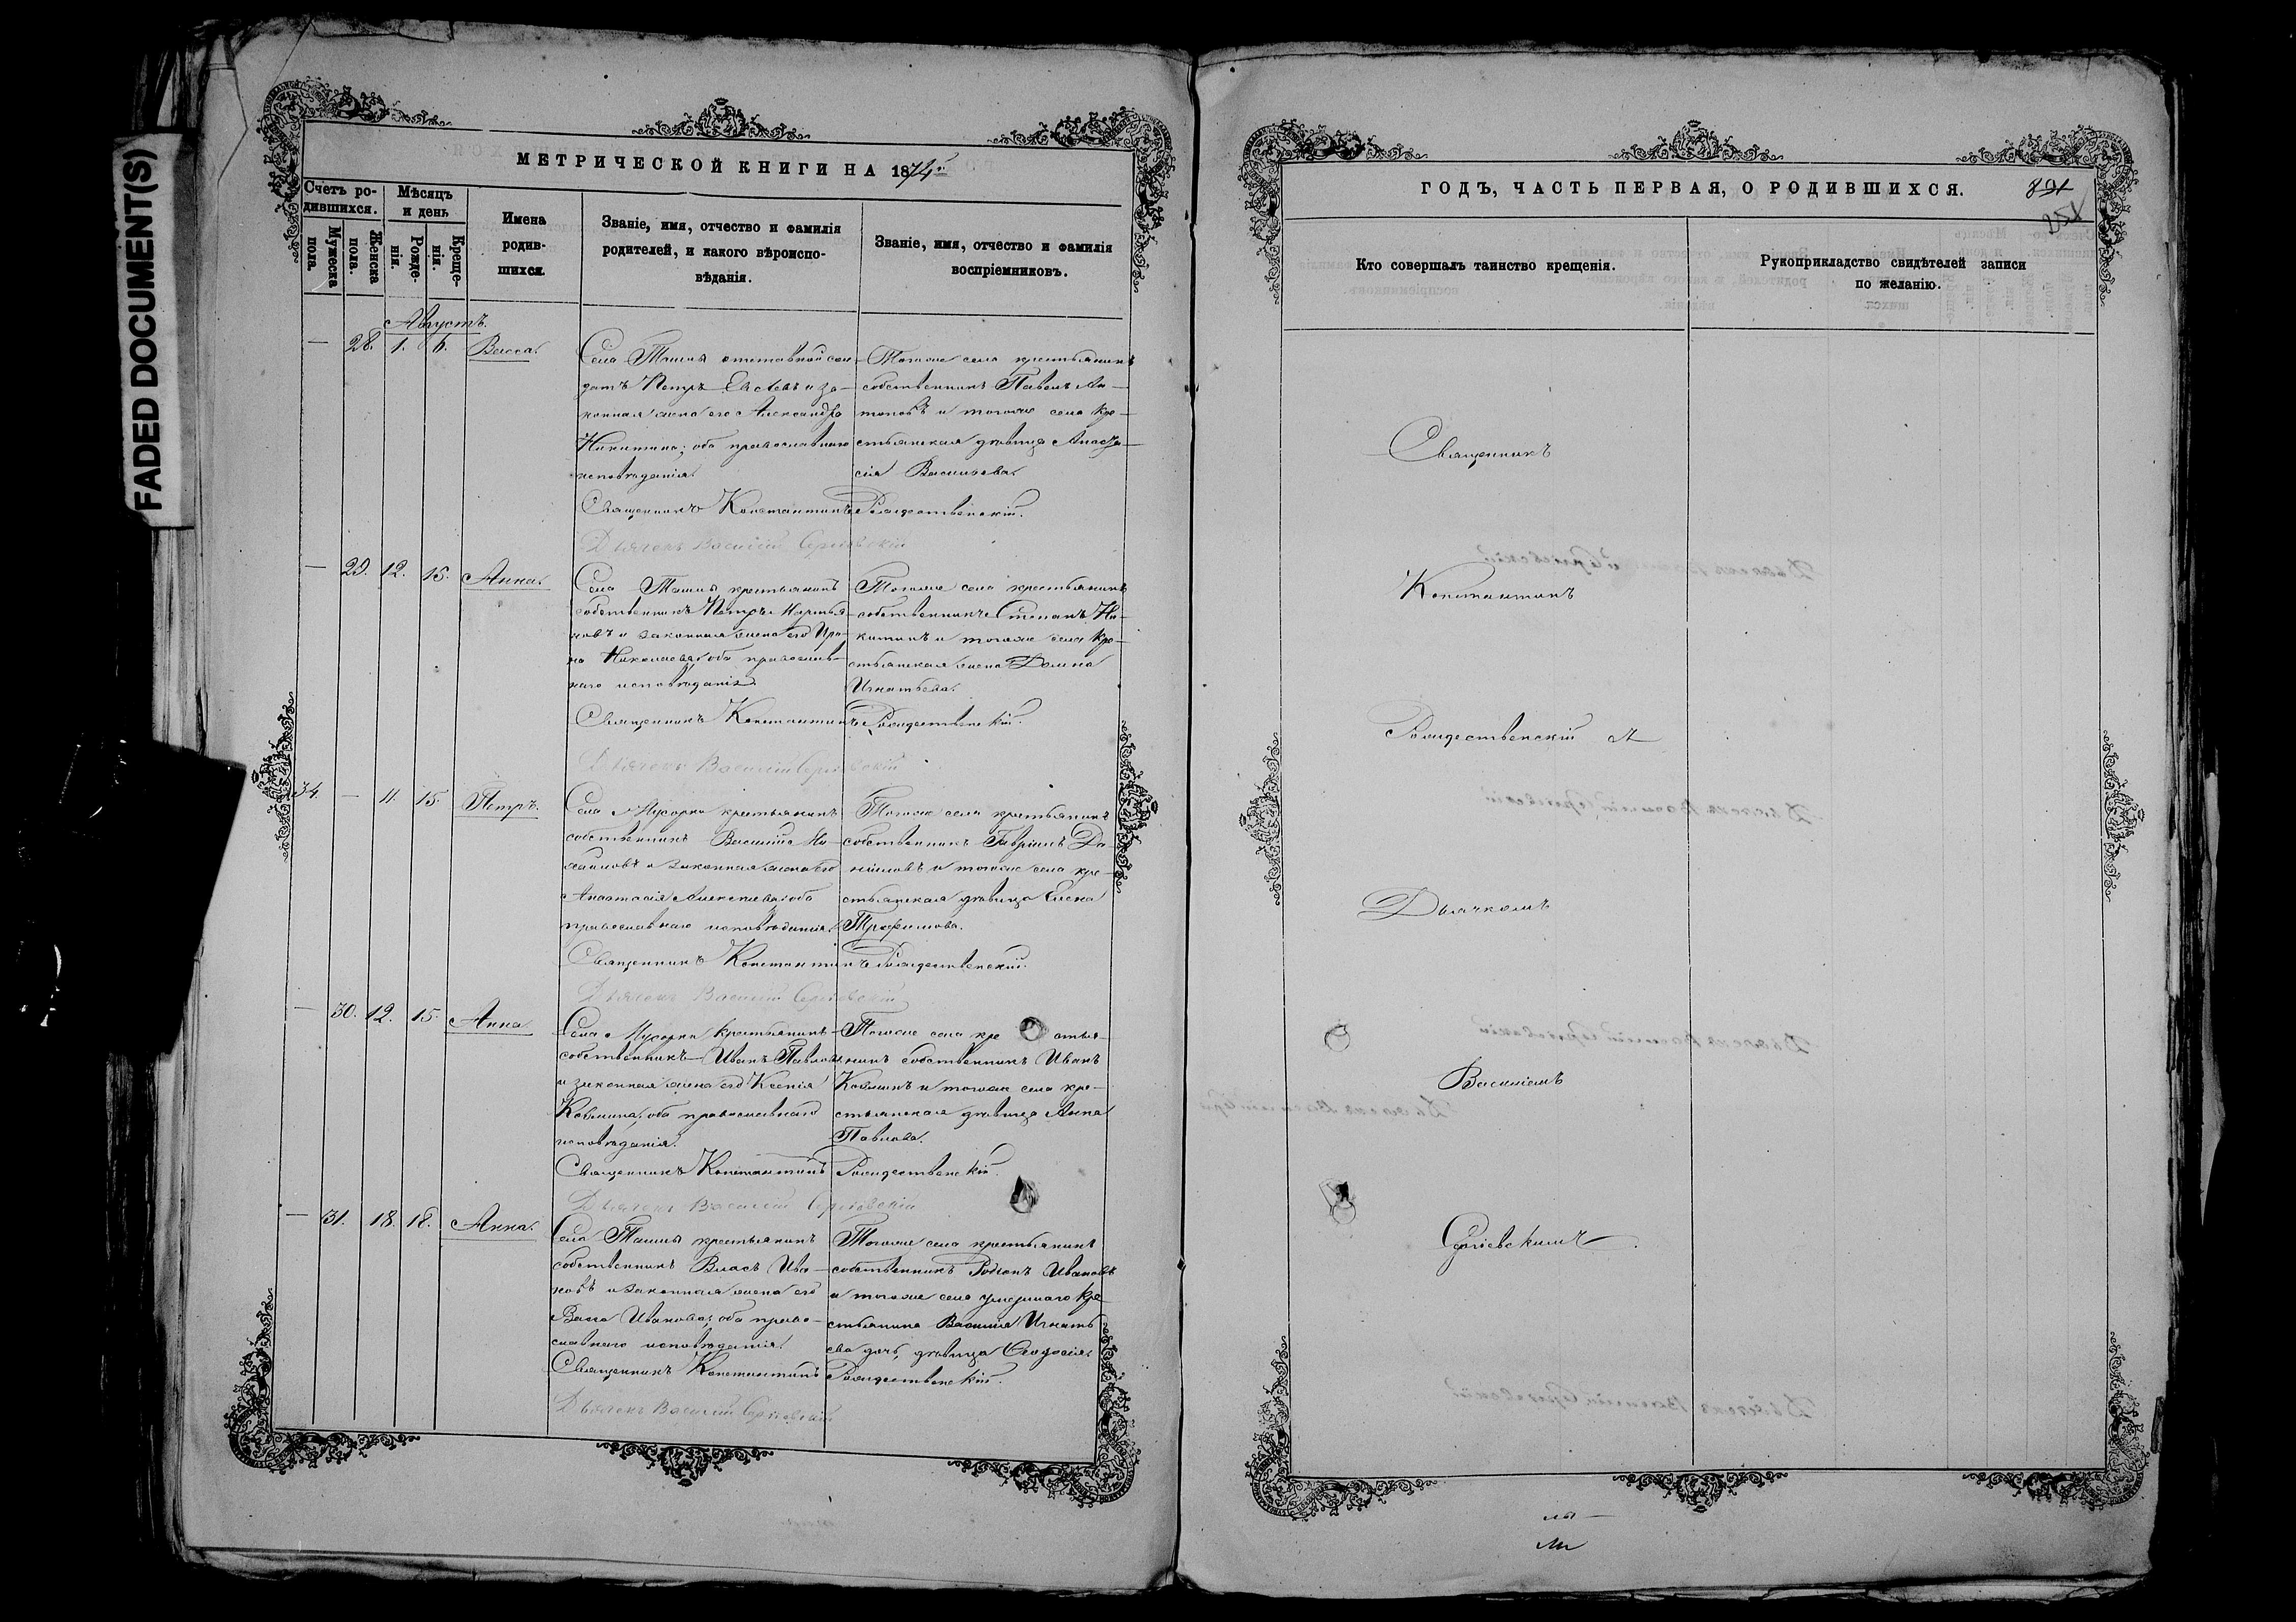 FADED DOCUMENT(S)
МЕТРИЧЕСКОЙ КНИГИ НА 1874й
Счетъ ро-
дившихся.
Мужеска пола.
Женска пола.
Мѣсяцъ и день
Рожде-
нія.
Креще-
нія.
Имена
родив-
шихся.
Званіе, имя, отчество и фамилія
родителей, и какого вѣроиспо-
вѣданія.
Званіе, имя, отчество и фамилія
воспріемниковъ.
Августъ.
— 28. 1. 6. Васса.
Села Ташлы отставной сол-
датъ Петръ и за-
конная жена его Александра
Никитина; оба православнаго
исповѣданія.
Тогоже села крестьянинъ
собственникъ Павелъ Ан-
тоновъ и тогоже села кре-
стьянская дѣвица Анаста-
сія Васильева.
Священникъ Константинъ Рождественскій.
Дьячекъ Василій Сергіевскій
— 29. 12. 15. Анна.
Села Ташлы крестьянинъ
собственникъ Петръ Мартья-
новъ и законная жена его Ири-
на Николаева; оба православ-
наго исповѣданія.
Тогоже села крестьянинъ
собственникъ Степанъ Ни-
китинъ и тогоже села кре-
стьянская жена Домна
Игнатьева.
Священникъ Константинъ Рождественскій.
Дьячекъ Василій Сергіевскій
34. — 11. 15. Петръ.
Села Мусорки крестьянинъ
собственникъ Василій Ми-
хайловъ и законная жена его
Анастасія Алексѣева; оба
православнаго исповѣданія.
Тогоже села крестьянинъ
собственникъ Гавріилъ Да-
ниловъ и тогоже села кре-
стьянская дѣвица Елена
Трофимова.
Священникъ Константинъ Рождественскій.
Дьячекъ Василій Сергіевскій
— 30. 12. 15. Анна
Села Мусорки крестьянинъ
собственникъ Иванъ Павловъ
и законная жена его Ксенія
Козмина, оба православнаго
исповѣданія.
Тогоже села кре стья-
нинъ собственникъ Иванъ
Козминъ и тогоже села кре-
стьянская дѣвица Анна
Павлова.
Священникъ Константинъ Рождественскій.
Дьячекъ Василій Сергіевскій
— 31. 18. 18. Анна.
Села Ташлы крестьянинъ
собственникъ Власъ Ива-
новъ и законная жена его
Васса Иванова; оба право-
славнаго исповѣданія.
Тогоже села крестьянинъ
собственникъ Родіонъ Ивановъ
и тогоже села умершаго кре-
стьянина Василія Игнать-
ева дочь, дѣвица Ѳеодосія.
Священникъ Константинъ Рождественскій.
Дьячекъ Василій Сергіевскій
ГОДЪ, ЧАСТЬ ПЕРВАЯ, О РОДИВШИХСЯ.
251
Кто совершалъ таинство крещенія.
Рукоприкладство свидѣтелей записи
по желанію.
Священникъ
Константинъ
Рождественскій
Дьячкомъ
Василіемъ
Сергіевскимъ